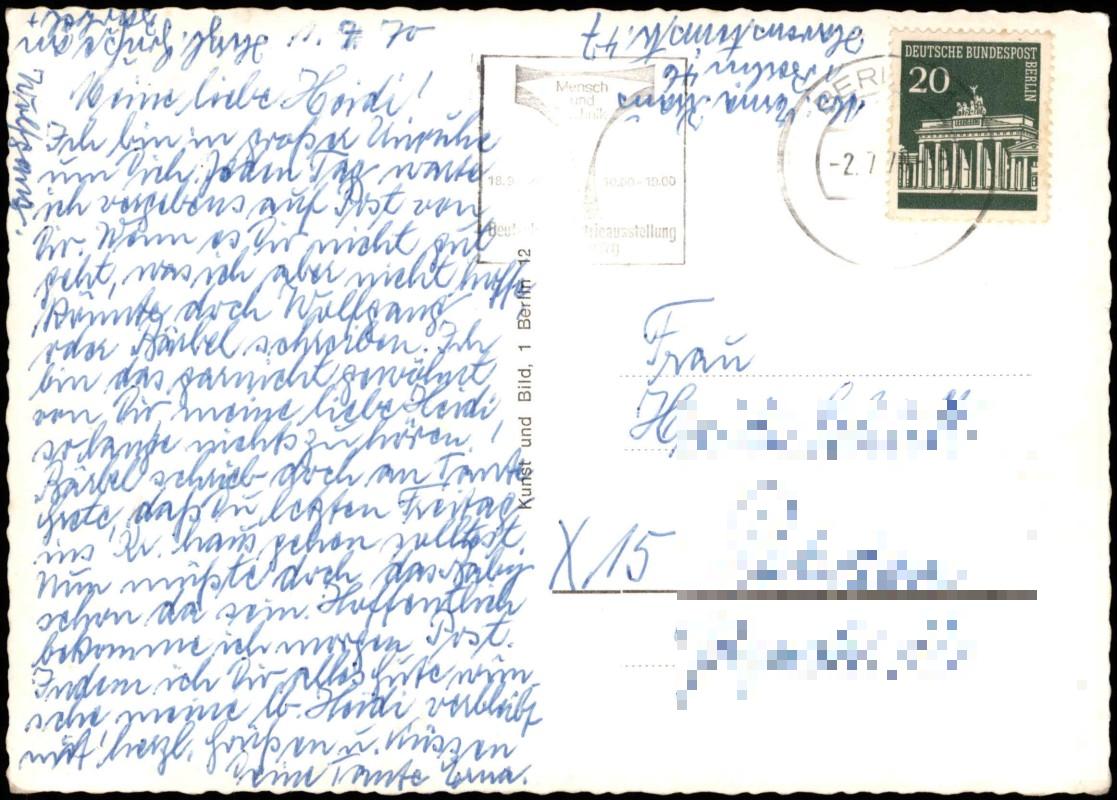 1. 7. 70
Meine liebe Heidi!
Ich bin in großer Unruhe
um Dich. Jeden Tag warte
ich vergebens auf Post von
Dir. Wenn es Dir nicht gut
geht, was ich aber nicht hoffe
könnte doch Wolfgang
oder Bärbel schreiben. Ich
bin das garnicht gewöhnt
von Dir meine liebe Heidi
so lange nichts zu hören!
Bärbel schrieb doch an Tante
Grete, daß Du letzten Freitag
ins Kr. haus gehen solltest.
Nun müßte doch das Baby
schon da sein. Hoffentlich
bekomme ich morgen Post.
Indem ich Dir alles Gute wün-
sche meine lb. Heidi verbleibt
mit herzl. Grüßen u. Küssen
Deine Tante Erna.
Herzl. Grüße an
Wolfgang.
Erna
1 Berlin 46
47
Mensch
und
Technik
18.9.
10.00-19.00
Deutsche Industrieausstellung
Berlin
BERLIN
-2.7.70
DEUTSCHE BUNDESPOST
BERLIN
20
Kunst und Bild, 1 Berlin 12
Frau
X 15